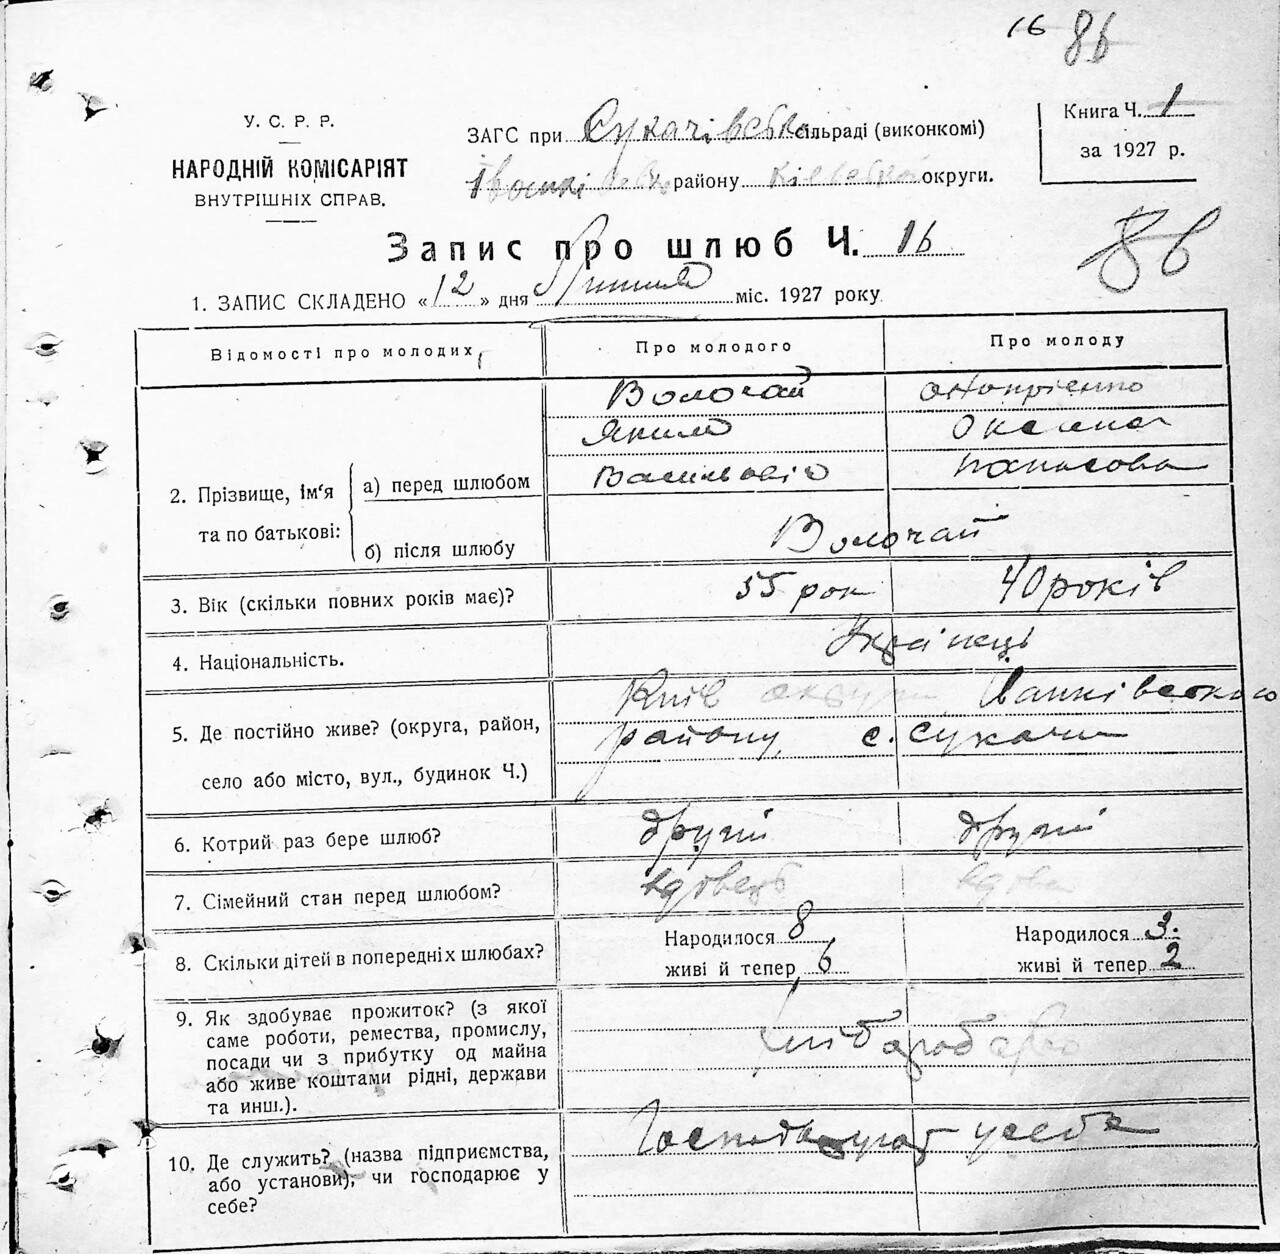 16 86
У. С. Р. Р.
НАРОДНІЙ КОМІСАРІЯТ
ВНУТРІШНІХ СПРАВ.
ЗАГС при Сукачівсько сільраді (виконкомі)
району Київської округи.
Книга Ч. 1
за 1927 р.
Запис про шлюб Ч. 16
86
1. ЗАПИС СКЛАДЕНО «12» дня Липня міс. 1927 року
Відомості про молодих
Про молодого
Про молоду
2. Прізвище, ім'я та по батькові:
а) перед шлюбом
Волочай
Яким
Васильовіч
Онопрієнко
Оксана
Панасова
б) після шлюбу
Волочай
3. Вік (скільки повних років має)?
55 рок
40 років
4. Національність.
Українці
5. Де постійно живе? (округа, район,
село або місто, вул., будинок Ч.)
Київ округи Іванківського
району с. Сукачи
6. Котрий раз бере шлюб?
другий
другий
7. Сімейний стан перед шлюбом?
вдовець
вдова
8. Скільки дітей в попередніх шлюбах?
Народилося 8
живі й тепер 6
Народилося 3.
живі й тепер 2
9. Як здобуває прожиток? (з якої
саме роботи, ремества, промислу,
посади чи з прибутку од майна
або живе коштами рідні, держави
та инш.).
хліборобство
10. Де служить? (назва підприємства,
або установи), чи господарює у
себе?
у себе